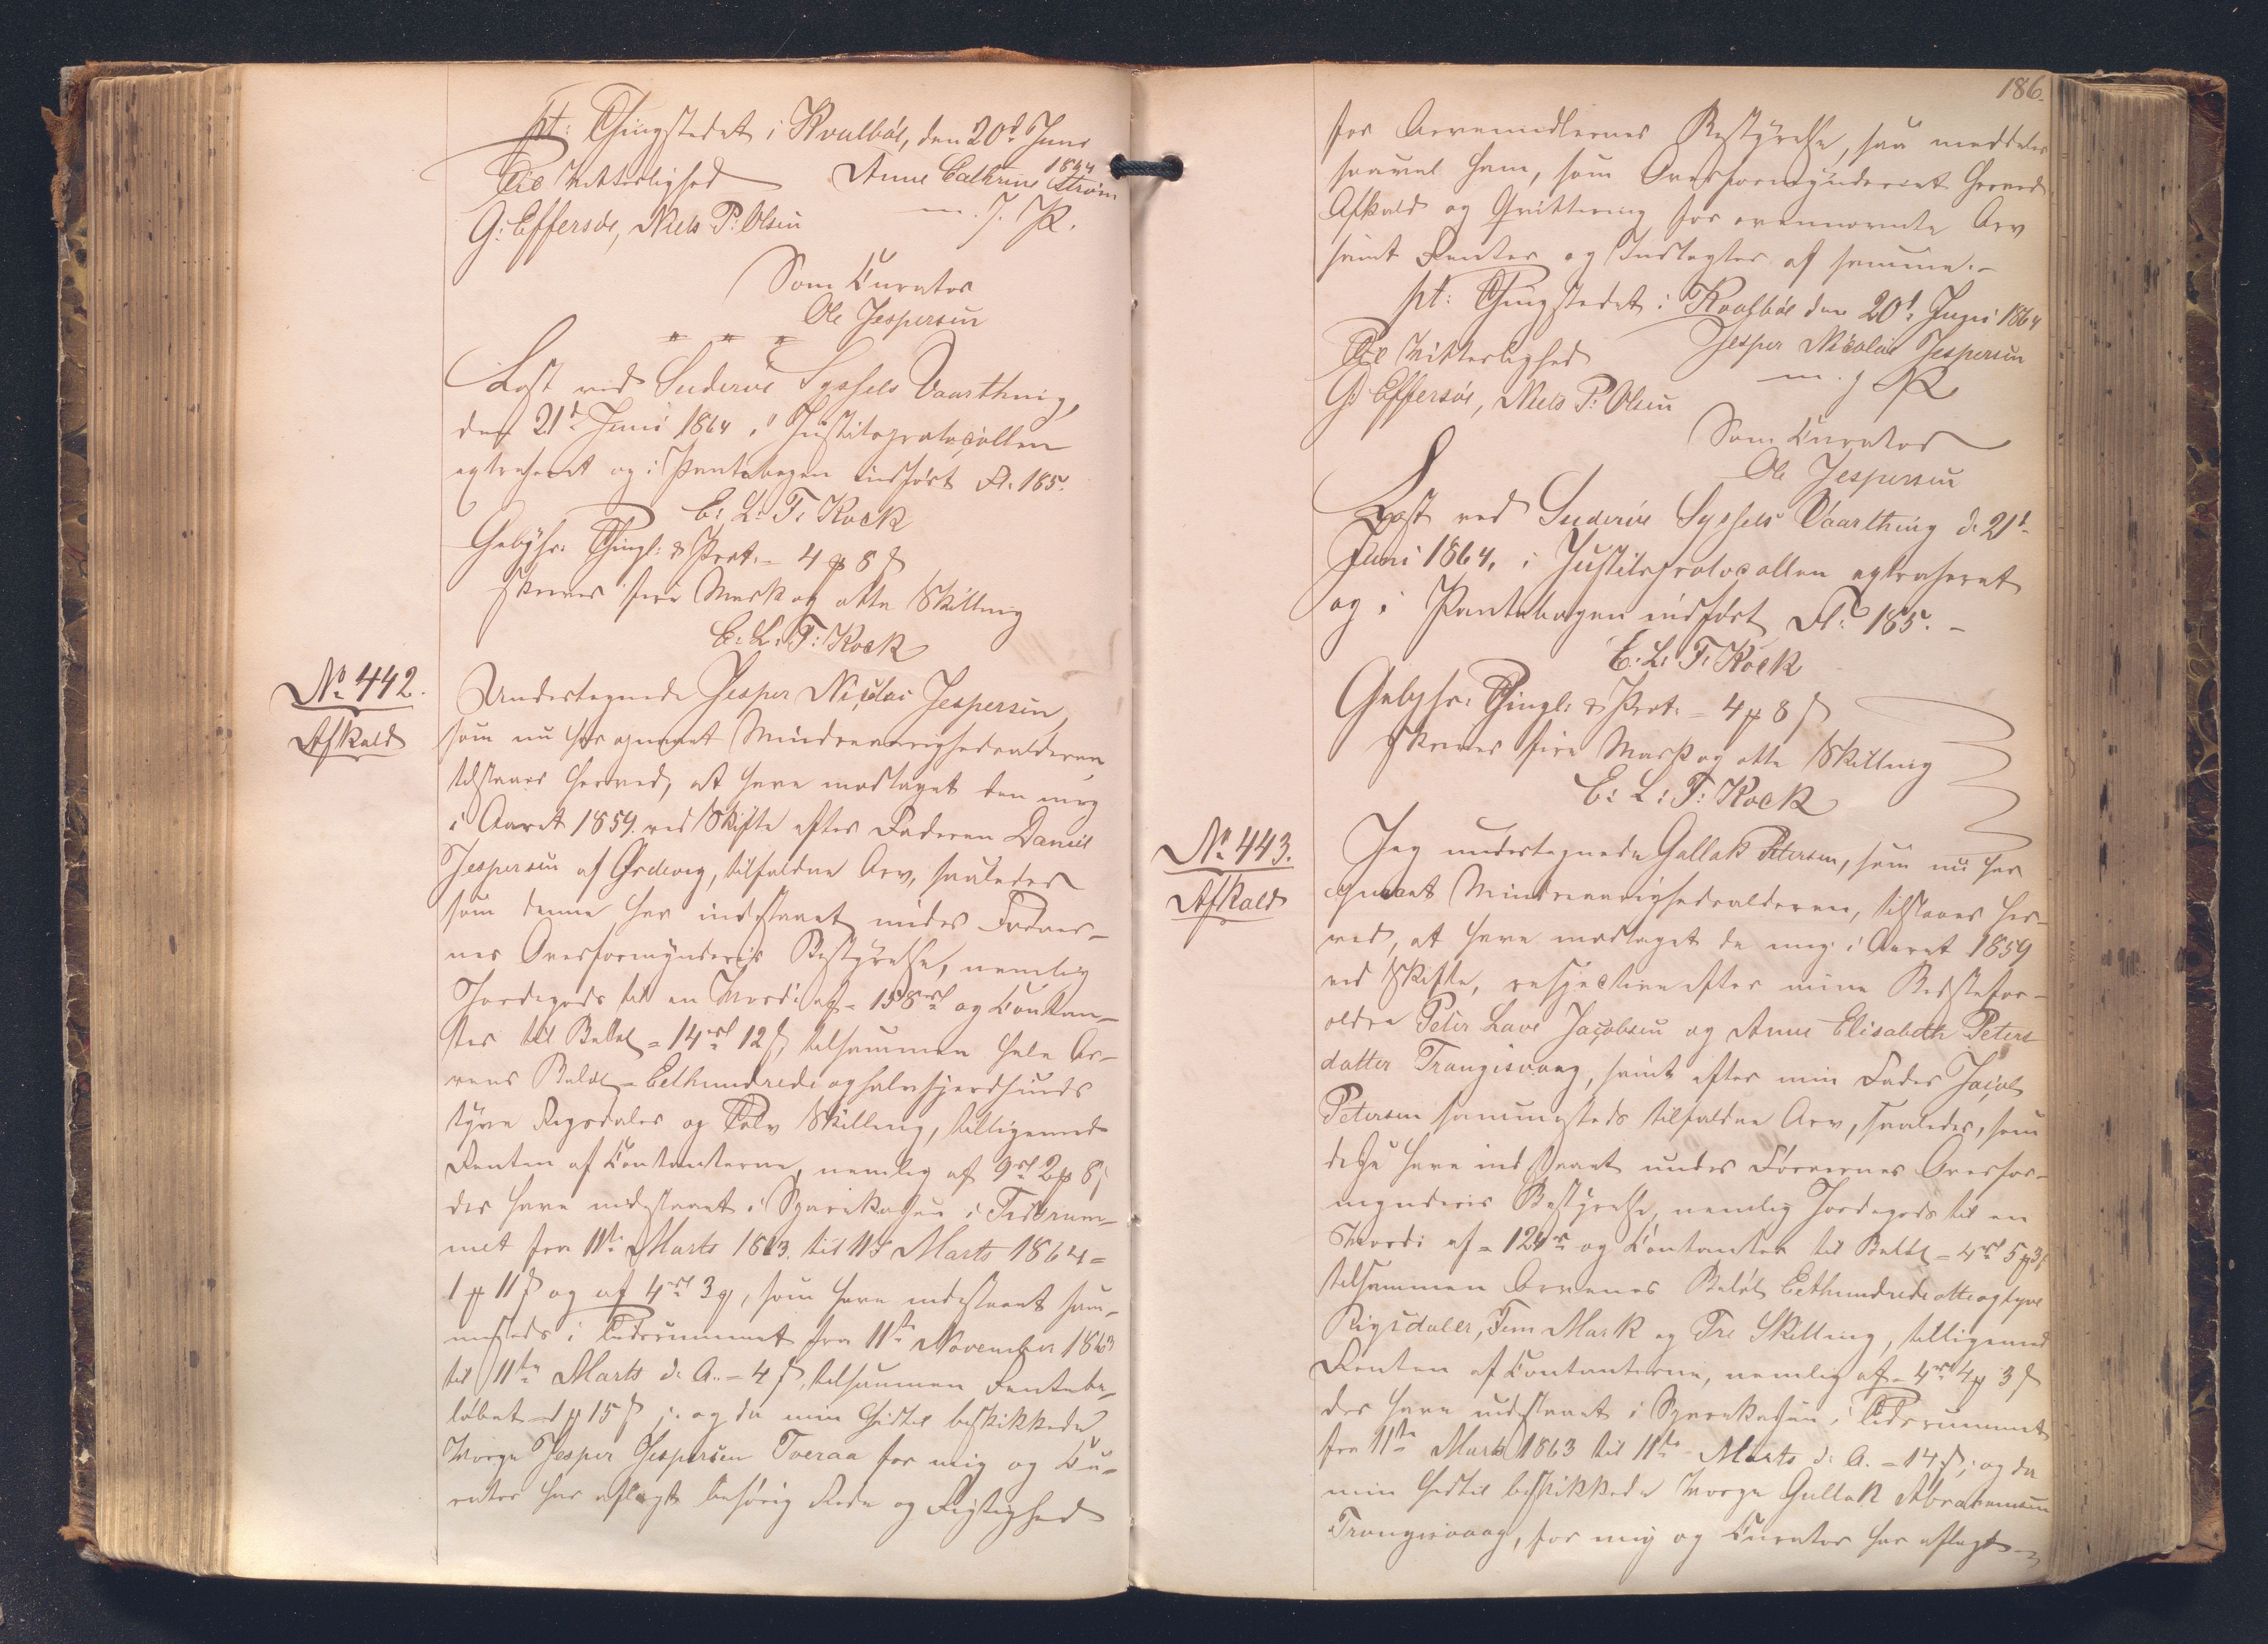 pt: Thingstedet i Kvalböe, den 20d Juni
1864
Til Vitterlighed Anne Cathrine Ström
G: Effersöe, Niels P: Olsen m. f. P.
Som Curator
Ole Jespersen
" " "
Læst ved Suderöe Syssels Vaarthing,
den 21d Juni 1864, i Justitsprotocollen
extraheret og i Pantebogen indfört Fl. 185.
E: L: T: Kock
Gebyhr: Thingl: & Prot. = 4 ꝑ 8 ß
skrives fire Mark og otte Skilling
E: L: T: Kock
No 442.
Afkald
Undertegnede Jesper Nicolai Jespersen,
som nu har opnaaet Mindreaarighedsalderen,
tilstaaer herved, at have modtaget den mig
i Aaret 1859 ved Skifte efter Faderen Daniel
Jespersen af Ördevig, tilfaldne Arv, saaledes
som denne har indestaaet under Færöer-
nes Overformynderis Bestyrelse, nemlig
Jordegods til en Værdi af = 158 rd og Contan-
ter til Belöb = 14 rd 12 ß, tilsammen hele Ar-
vens Belöb = Eethundrede og halvfjerdsinds
tyve Rigsdaler og Tolv Skilling, tilligemed
Renten af Contanterne, nemlig af 9 rd 2 ꝑ 8 ß
der have indestaaet i Sparekassen i Tidsrum-
met fra 11te Marts 1863 til 11te Marts 1864 =
1 ꝑ 11 ß og af 4 rd 3 ꝑ, som have indestaaet sam-
mesteds i Tidsrummet fra 11te November 1863
til 11te Marts d: A. = 4 ß, tilsammen Rentebe-
löbet = 1 ꝑ 15 ß; og da min hidtil beskikkede
Værge Jesper Jespersen Tveraa for mig og Cu-
rator har aflagt behörig Rede og Rigtighed
186.
for Arvemidlernes Bestyrelse, saa meddeles
saavel ham, som Overformynderiet herved
Afkald og Qvittering for ovennævnte Arv
samt Renter og Indtægter af samme. -
pt: Thingstedet i Kvalböe den 20d Juni 1864
Til Vitterlighed Jesper Nicolai Jespersen
G: Effersöe, Niels P: Olsen m. f. P
Som Curator
Ole Jespersen
Læst ved Suderöe Syssels Vaarthing d. 21d
Juni 1864, i Justitsprotocollen extraheret
og i Pantebogen indfört Fl: 185. -
E: L: T: Kock
Gebyhr: Thingl: & Prot. = 4 ꝑ 8 ß
skrives fire Mark og otte Skilling
E: L: T: Kock
No 443.
Afkald
Jeg undertegnede Gallak Petersen, som nu har
opnaaet Mindreaarighedsalderen, tilstaaer her-
ved, at have modtaget de mig i Aaret 1859
ved Skifte, respective efter mine Bedstefor-
ældre Peter Lave Jacobsen og Anne Elisabeth Peters-
datter Trangisvaag, samt efter min Fader Jacob
Petersen sammesteds tilfaldne Arv, saaledes, som
disse have indestaaet under Færöernes Overfor-
mynderis Bestyrelse, nemlig Jordegods til en
Værdi af = 124 rd og Contanter til Belöb = 4 rd 5 ꝑ 3 ß
tilsammen Arvenes Belöb Eethundrede otteogtyve
Rigsdaler, Fem Mark og Tre Skilling, tilligemed
Renten af Contanterne, nemlig af = 4 rd 4 ꝑ 3 ß
der have indestaaet i Sparekassen i Tidsrummet
fra 11te Marts 1863 til 11te Marts d: A. = 14 ß; og da
min hidtil beskikkede Værge Gullak Abrahamsen
Trangisvaag, for mig og Curator har aflagt